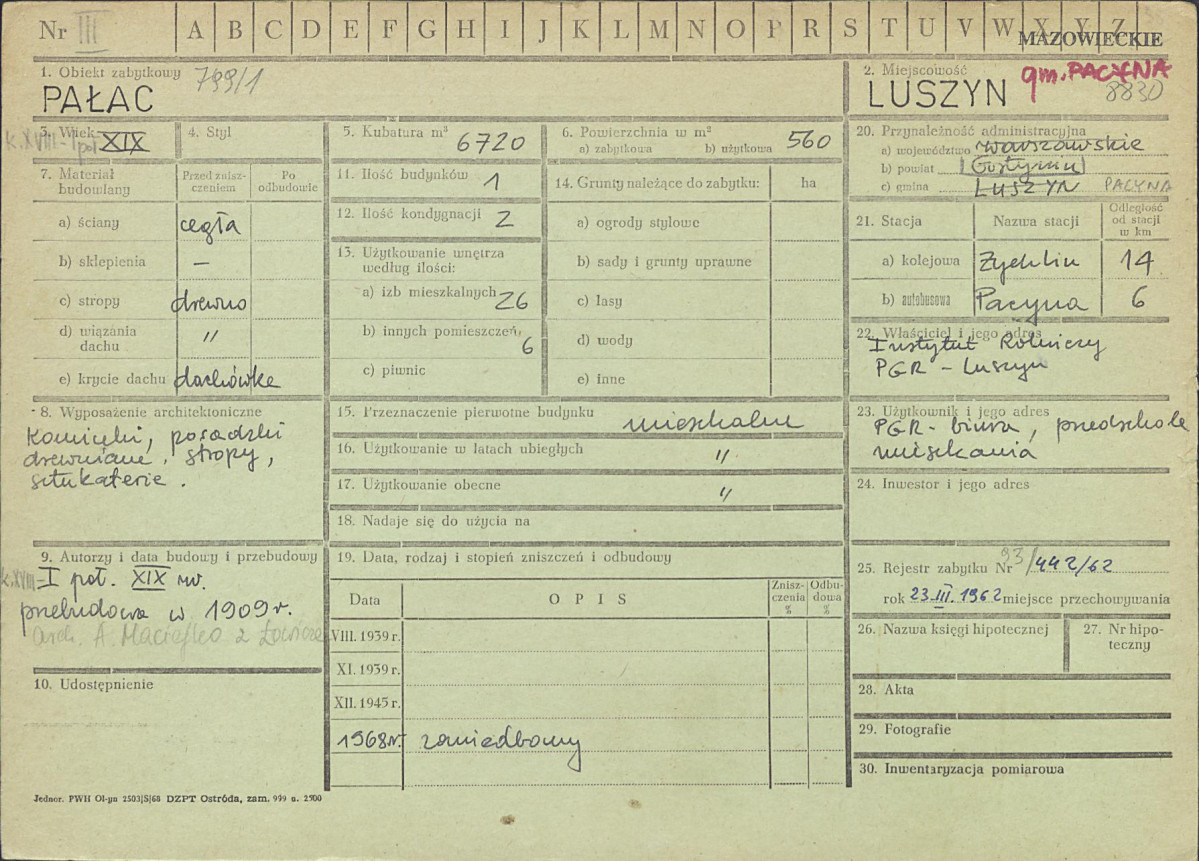 Nr III A B C D E F G H I J K L M N O P R S T U V W X Y Z
MAZOWIECKIE
1. Obiekt zabytkowy 799/1
PAŁAC
2. Miejscowość gm. PACYNA
LUSZYN 8830
3. Wiek k. XVIII - I poł XIX
4. Styl
5. Kubatura m³ 6720
6. Powierzchnia w m²
a) zabytkowa b) użytkowa 560
7. Materiał budowlany
Przed zniszczeniem
Po odbudowie
a) ściany cegła
b) sklepienia —
c) stropy drewno
d) wiązania dachu "
e) krycie dachu dachówka
8. Wyposażenie architektoniczne
Kominki, posadzki
drewniane, stropy,
sztukaterie.
9. Autorzy i data budowy i przebudowy
k. XVIII - I poł. XIX w.
przebudowa w 1909 r.
arch. A. z Łowicza
10. Udostępnienie
11. Ilość budynków 1
12. Ilość kondygnacji 2
13. Użytkowanie wnętrza
według ilości:
a) izb mieszkalnych 26
b) innych pomieszczeń 6
c) piwnic
14. Grunty należące do zabytku: ha
a) ogrody stylowe
b) sady i grunty uprawne
c) lasy
d) wody
e) inne
15. Przeznaczenie pierwotne budynku mieszkalne
16. Użytkowanie w latach ubiegłych "
17. Użytkowanie obecne "
18. Nadaje się do użycia na
19. Data, rodzaj i stopień zniszczeń i odbudowy
Data O P I S Zniszczenia % Odbudowa %
VIII. 1939 r.
XI. 1939 r.
XII. 1945 r.
1968 r. zaniedbany
20. Przynależność administracyjna
a) województwo warszawskie
b) powiat Gostynin
c) gmina LUSZYN PACYNA
21. Stacja Nazwa stacji Odległość od stacji w km
a) kolejowa Żychlin 14
b) autobusowa Pacyna 6
22. Właściciel i jego adres
Instytut Rolniczy
PGR - Luszyn
23. Użytkownik i jego adres
PGR - biura, przedszkole
mieszkania
24. Inwestor i jego adres
25. Rejestr zabytku Nr 93/442/62
rok 23.III.1962 miejsce przechowywania
26. Nazwa księgi hipotecznej
27. Nr hipoteczny
28. Akta
29. Fotografie
30. Inwentaryzacja pomiarowa
Jednor. PWH Ol-yn 2503|S|68 DZPT Ostróda, zam. 999 n. 2500